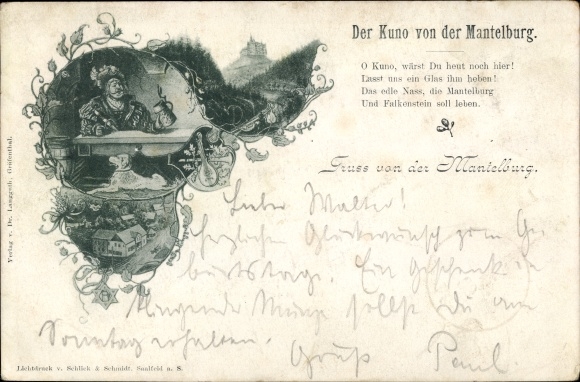 Der Kuno von der Mantelburg.
O Kuno, wärst Du heut noch hier!
Lasst uns ein Glas ihm heben!
Das edle Nass, die Mantelburg
Und Falkenstein soll leben.
Gruss von der Mantelburg.
Lieber Walter!
herzlichen Glückwunsch zum Ge
burtstage. Ein Geschenk in
klingender Münze sollst du am
Sonntag erhalten. Gruß Paul.
Verlag v. Dr. Langguth, Gräfenthal.
Lichtdruck v. Schlick & Schmidt, Saalfeld a. S.